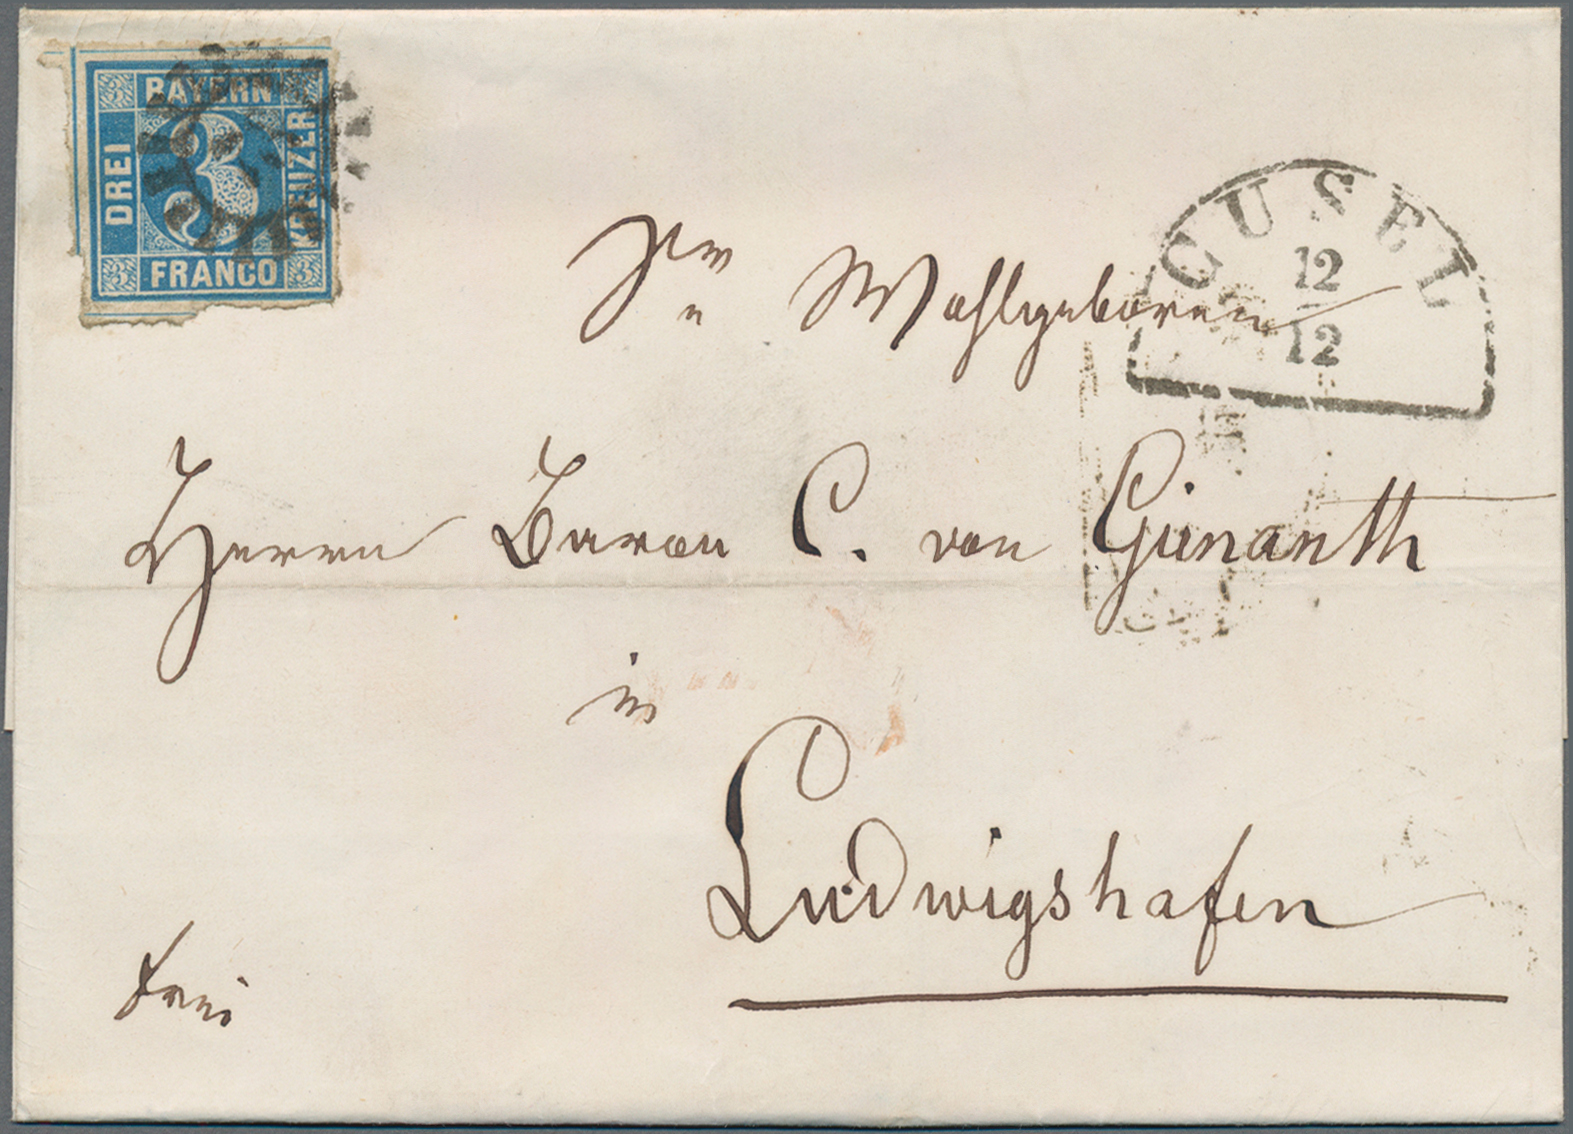 BAYERN
DREI
3
KREUZER
FRANCO
CUSEL
12
12
Sr Wohlgeboren
Herrn Baron C. von Gienanth
in
Ludwigshafen
frei